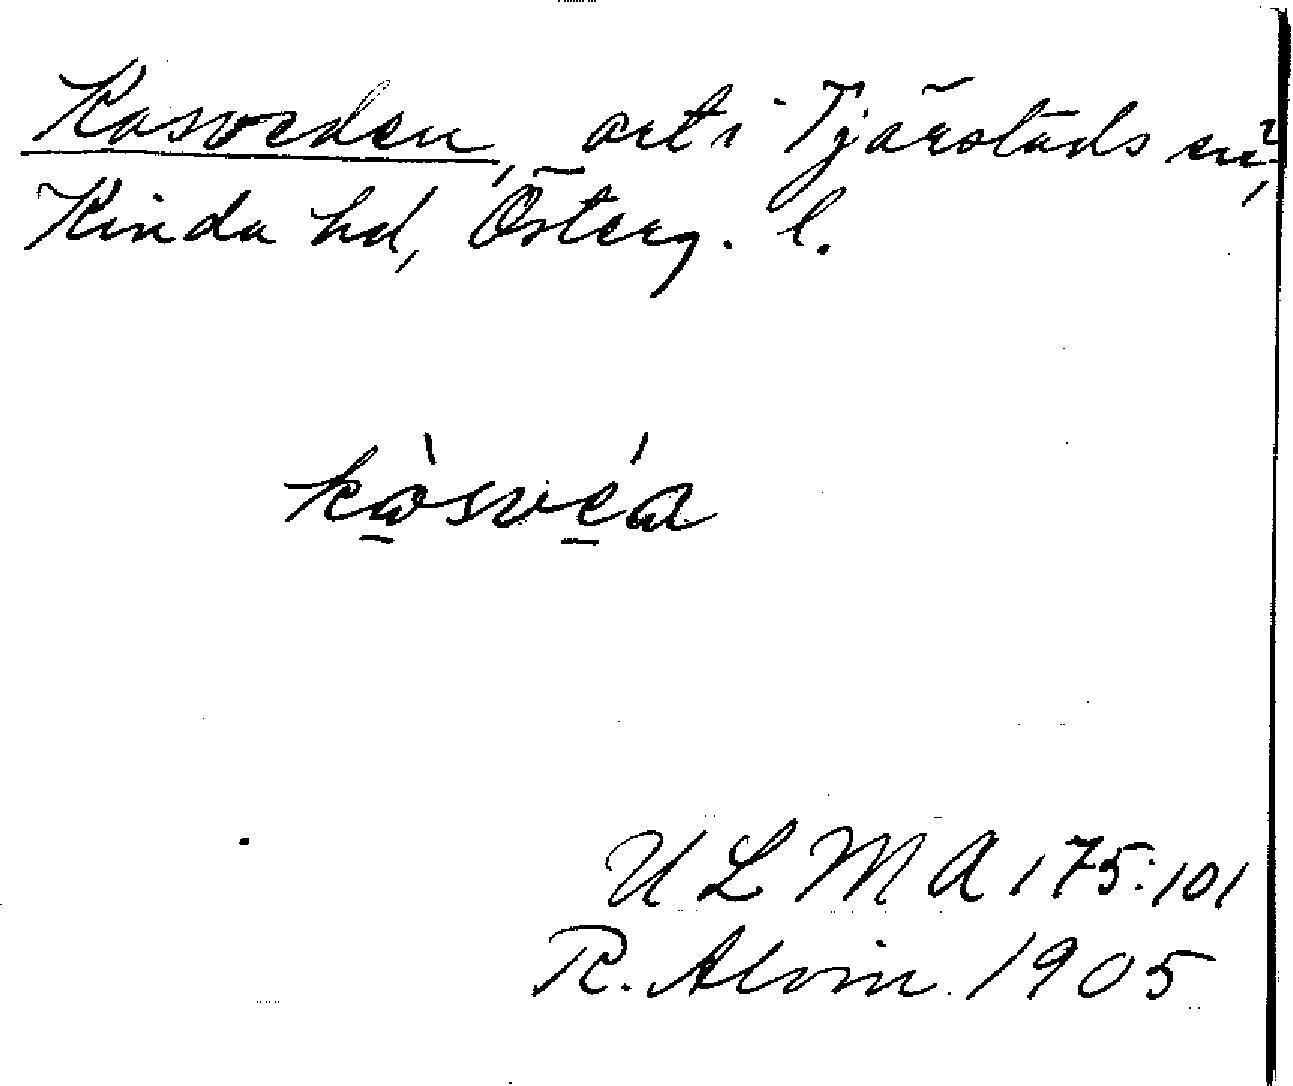 Kasveden, ort i Tjärstads sn?,
Kinda hd, Österg. l.
kàsvéa
U L M A 175:101
R. Alvin. 1905